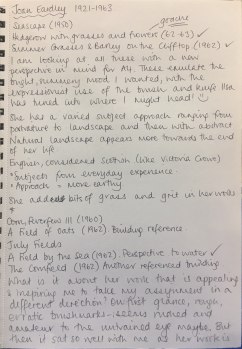 Joan Eardley 1921-1963
Seascape (1950) gouache
Hedgerow with grasses and flowers (62+3) ✓
Summer Grasses & Barley on the Clifftop (1962) ✓
I am looking at all these with a new
perspective in mind for A4. These emulate the
bright, summery mood I wanted, with the
expressionist use of the brush and knife
has tuned into where I might head! ☺
She has a varied subject approach ranging from
portraiture to landscape and then with abstract
Natural landscape appears more towards the end
of her life
English, considered Scottish (like Victoria Crowe)
• Subjects from everyday experience.
• Approach = more earthy
She adds bits of grass and grit in her work
Corn, (1960)
A Field of oats (1962) Buildup reference
July Fields
A Field by the Sea (1962). Perspective to water ✓
The Cornfield (1962) Another referenced buildup
What is it about her work that is appealing
& inspiring me to take my assignment in a
different direction? On first glance, rough,
erratic brushmarks - seems rushed and
amateur to the untrained eye maybe. But
then it sat so well with me as her work is